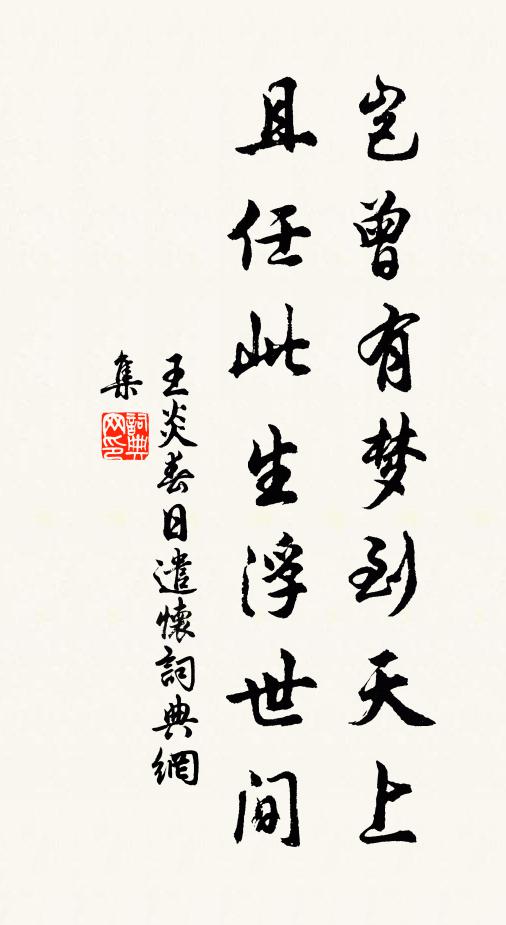 岂曾有梦到天上
且任此生浮世间
王炎春日遣懷詞典網
集
詞典网印